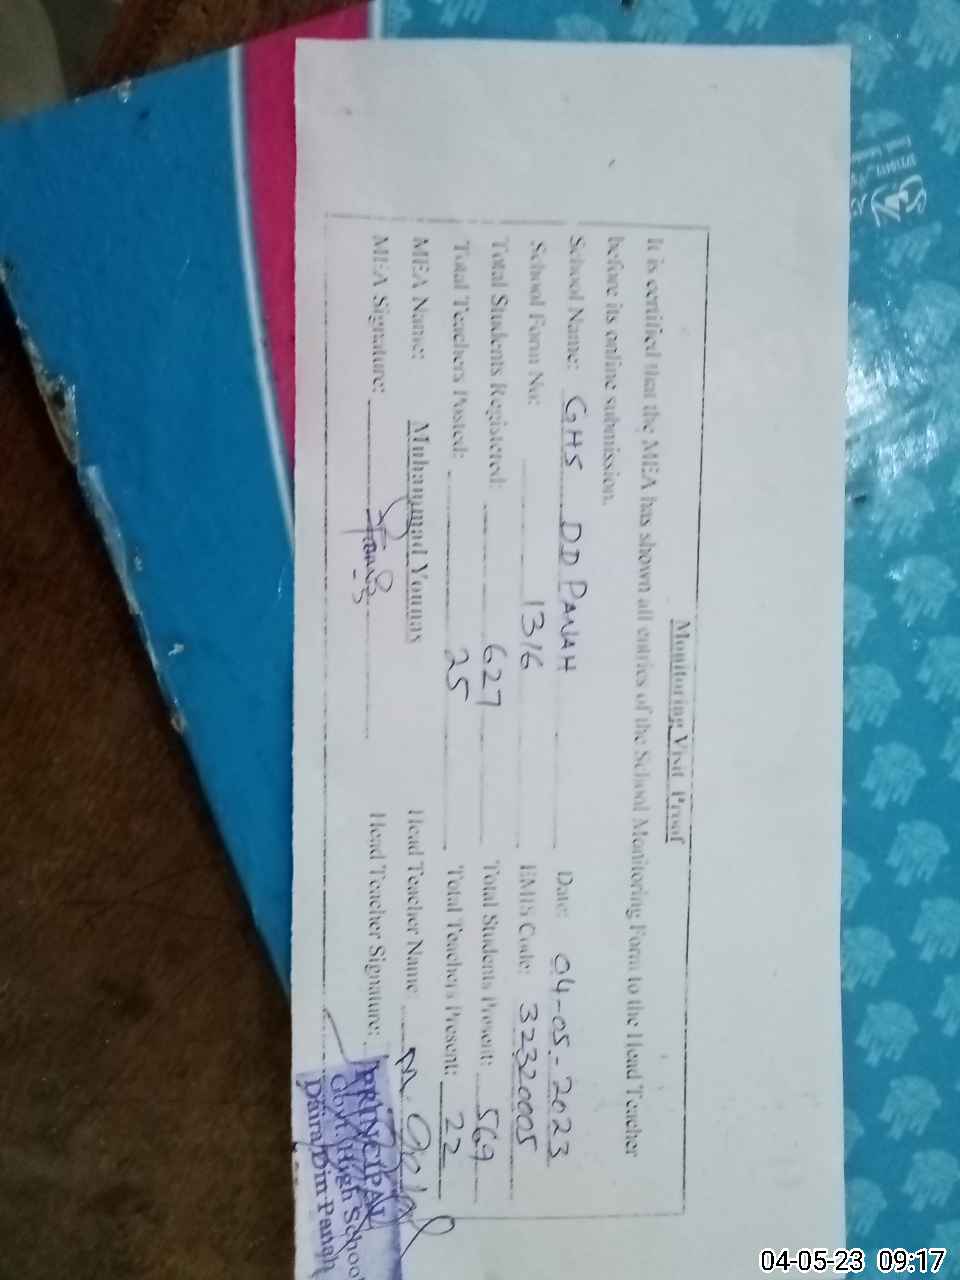 Monitoring Visit Proof
It is certified that the MEA has shown all entries of the School Monitoring Form to the Head Teacher
before its online submission.
School Name: GHS DD PANAH Date: 04-05-2023
School Form No: 1316 EMIS Code: 32320005
Total Students Registered: 627 Total Students Present: 569
Total Teachers Posted: 25 Total Teachers Present: 22
MEA Name: Muhammad Younas Head Teacher Name: M.
MEA Signature: Head Teacher Signature:
PRINCIPAL
Govt. High School
Daira Din Panah
04-05-23 09:17